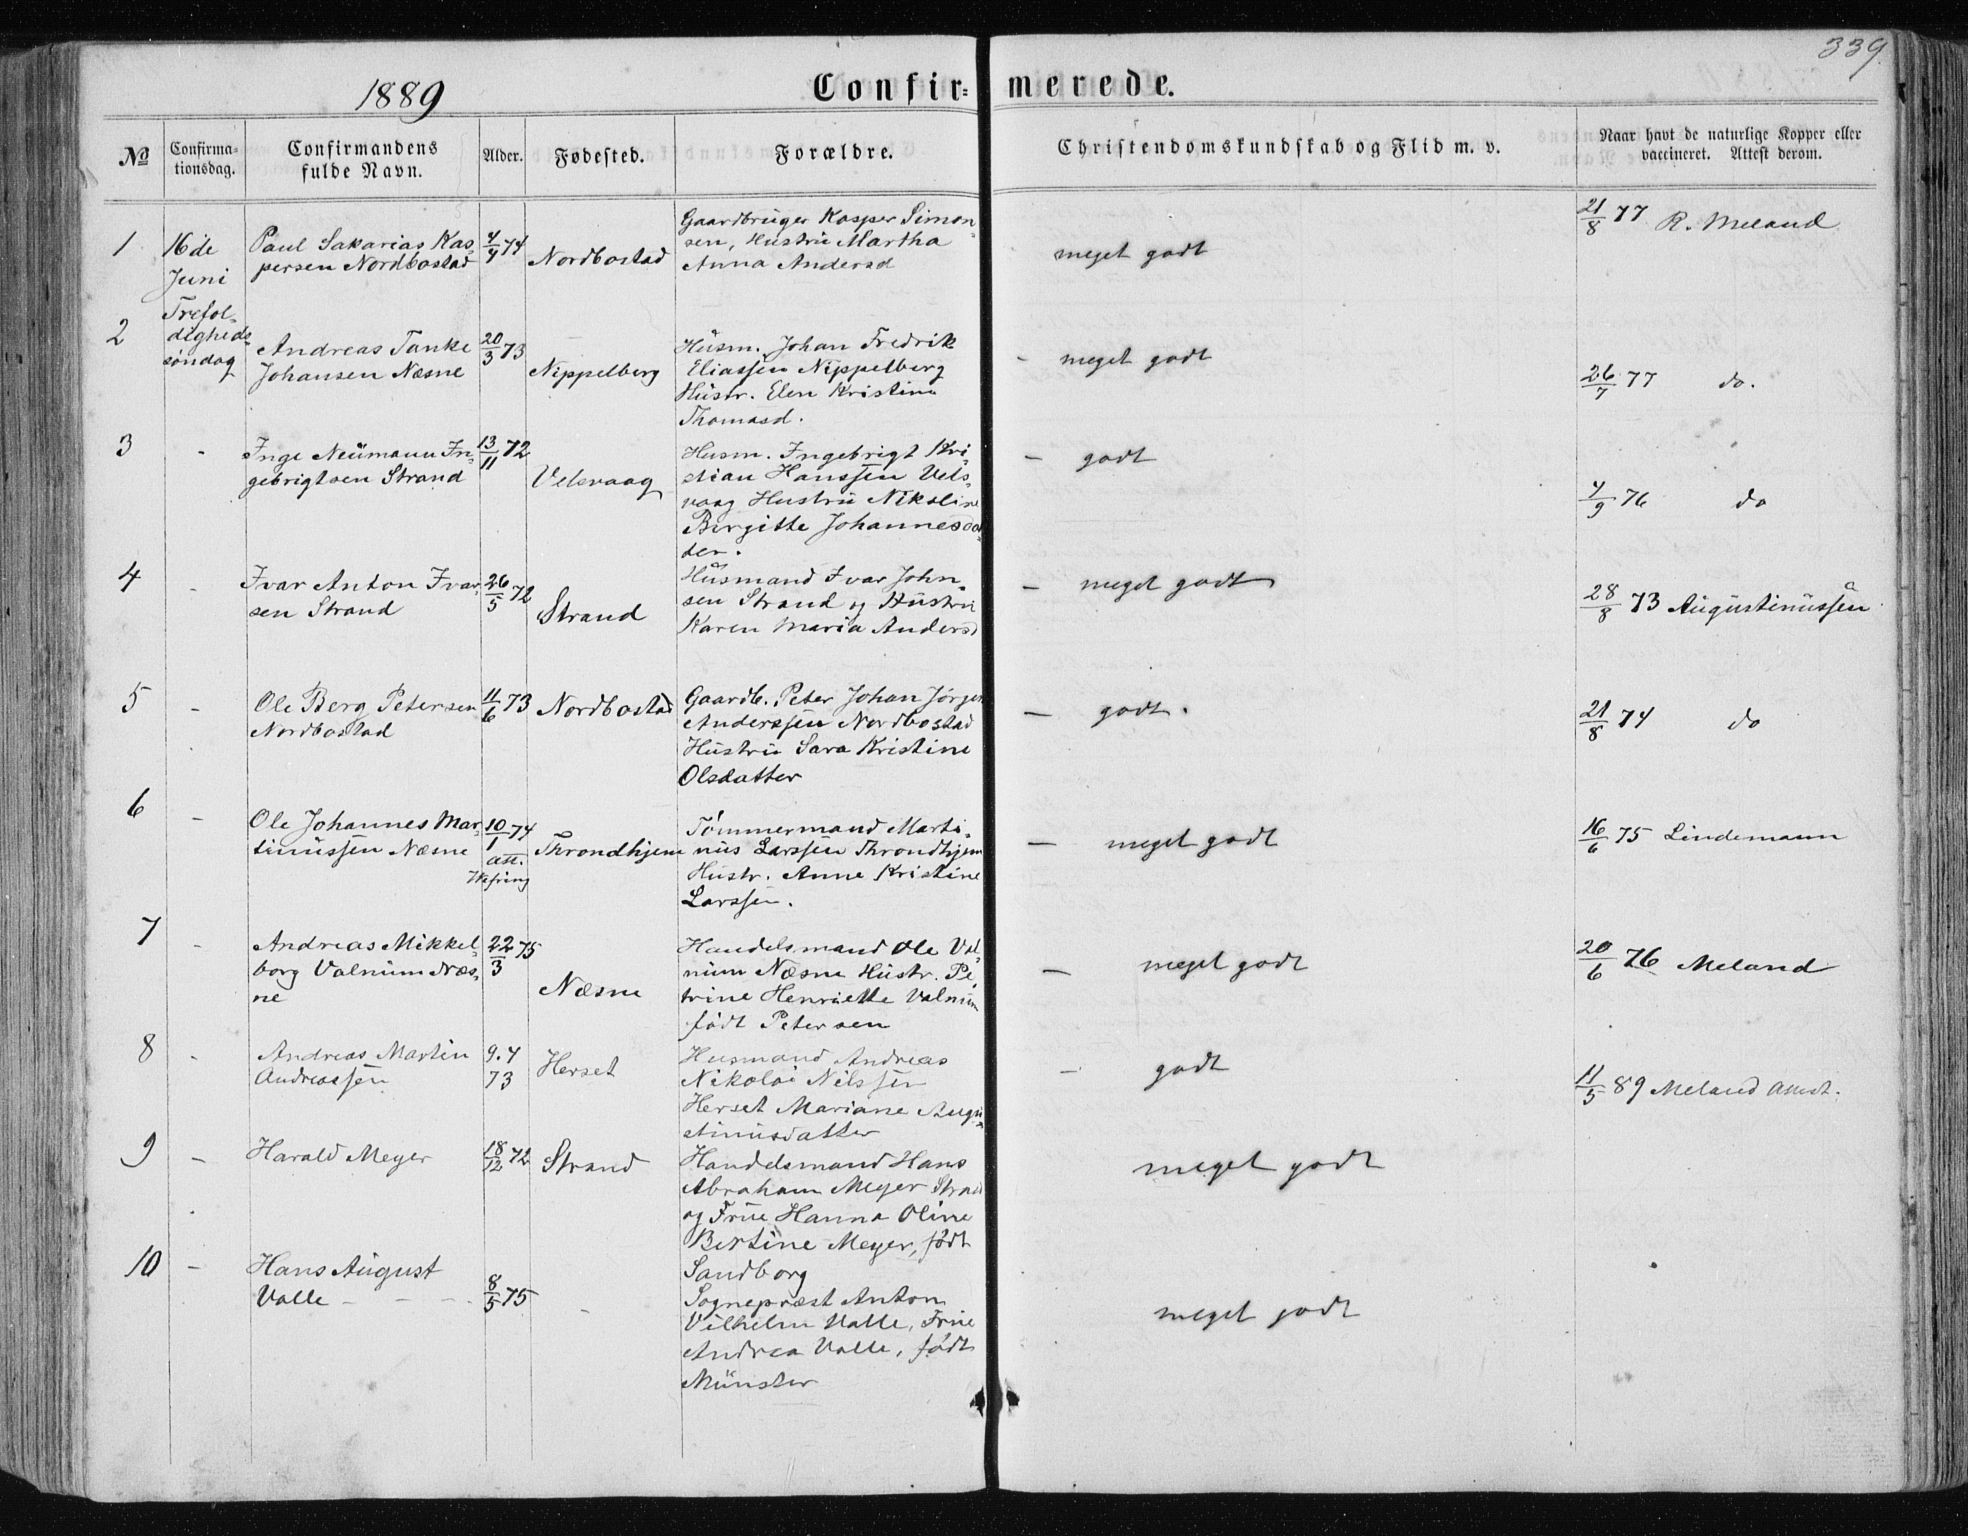 339
1889
Confir- merede.
No
Confirma-
tionsdag.
Confirmandens
fulde Navn.
Alder.
Fødested.
Forældre.
Christendomskundskab og Flid m. v.
Naar havt de naturlige Kopper eller
vaccineret. Attest derom.
1
16de
Juni
Trefol-
digheds-
søndag
Paul Sakarias Kas-
persen Nordbostad
4/4 74
Nordbostad
Gaardbruger Kasper Simon-
sen, Hustru Martha
Anna Andersd
meget godt
21/8 77 R. Meland
2
Andreas Tanke
Johansen Næsne
20/3 73
Nippelberg
Husm. Johan Fredrik
Eliassen Nippelberg
Hustr. Elen Kristine
Thomasd.
- meget godt
26/7 77 do.
3 -
Inge Neumann In-
gebrigtsen Strand
13/11 72
Velsvaag
Husm. Ingebrigt Kri-
stian Hanssen Vels-
vaag Hustru Nikoline
Birgitte Johannesdat-
der.
- godt
4/9 76 do
4 -
Ivar Anton Ivar-
sen Strand
26/5 72
Strand
Husmand Ivar John-
sen Strand og Hustru
Karen Maria Andersd
- meget godt
28/8 73 Augustinussen
5 -
Ole Berg Petersen
Nordbostad
11/6 73
Nordbostad
Gaardb. Peter Johan Jørgen
Anderssen Nordbostad
Hustru Sara Kristine
Olsdatter
- godt.
21/8 74 do
6 -
Ole Johannes Mar-
tinussen Næsne
10/1 74
att.
Throndhjem
Tømmermand Marti-
nus Larssen Throndhjem
Hustr. Anne Kristine
Larssen.
- meget godt
16/6 75 Lindemann
7 -
Andreas Mikkel-
borg Valnum Næs-
ne
22/3 75
Næsne
Handelsmand Ole Val-
num Næsne Hustr. Pe-
trine Henriette Valnum
født Petersen
- meget godt
20/6 76 Meland
8 -
Andreas Martin
Andreassen
9.4
73
Herset
Husmand Andreas
Nikolai Nilssen
Herset Mariane Augu-
stinusdatter
- godt
11/5 89 Meland Attest.
9 -
Harald Meyer
18/12 72
Strand
Handelsmand Hans
Abraham Meyer Strand
og Frue Hanna Oline
Bertine Meyer, født
Sandborg
meget godt
10 -
Hans August
Valle - - -
8/5 75
-
Sognepræst Anton
Vilhelm Valle, Frue
Andrea Valle, født
Münster
meget godt